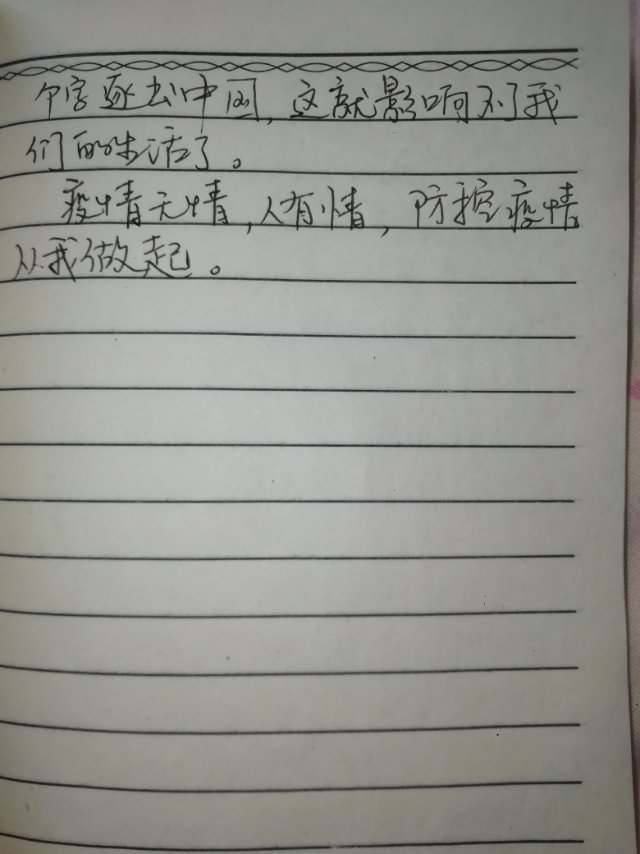 个字逐出中国，这就影响不了我
们的生活了。
疫情无情，人有情，防控疫情
从我做起。